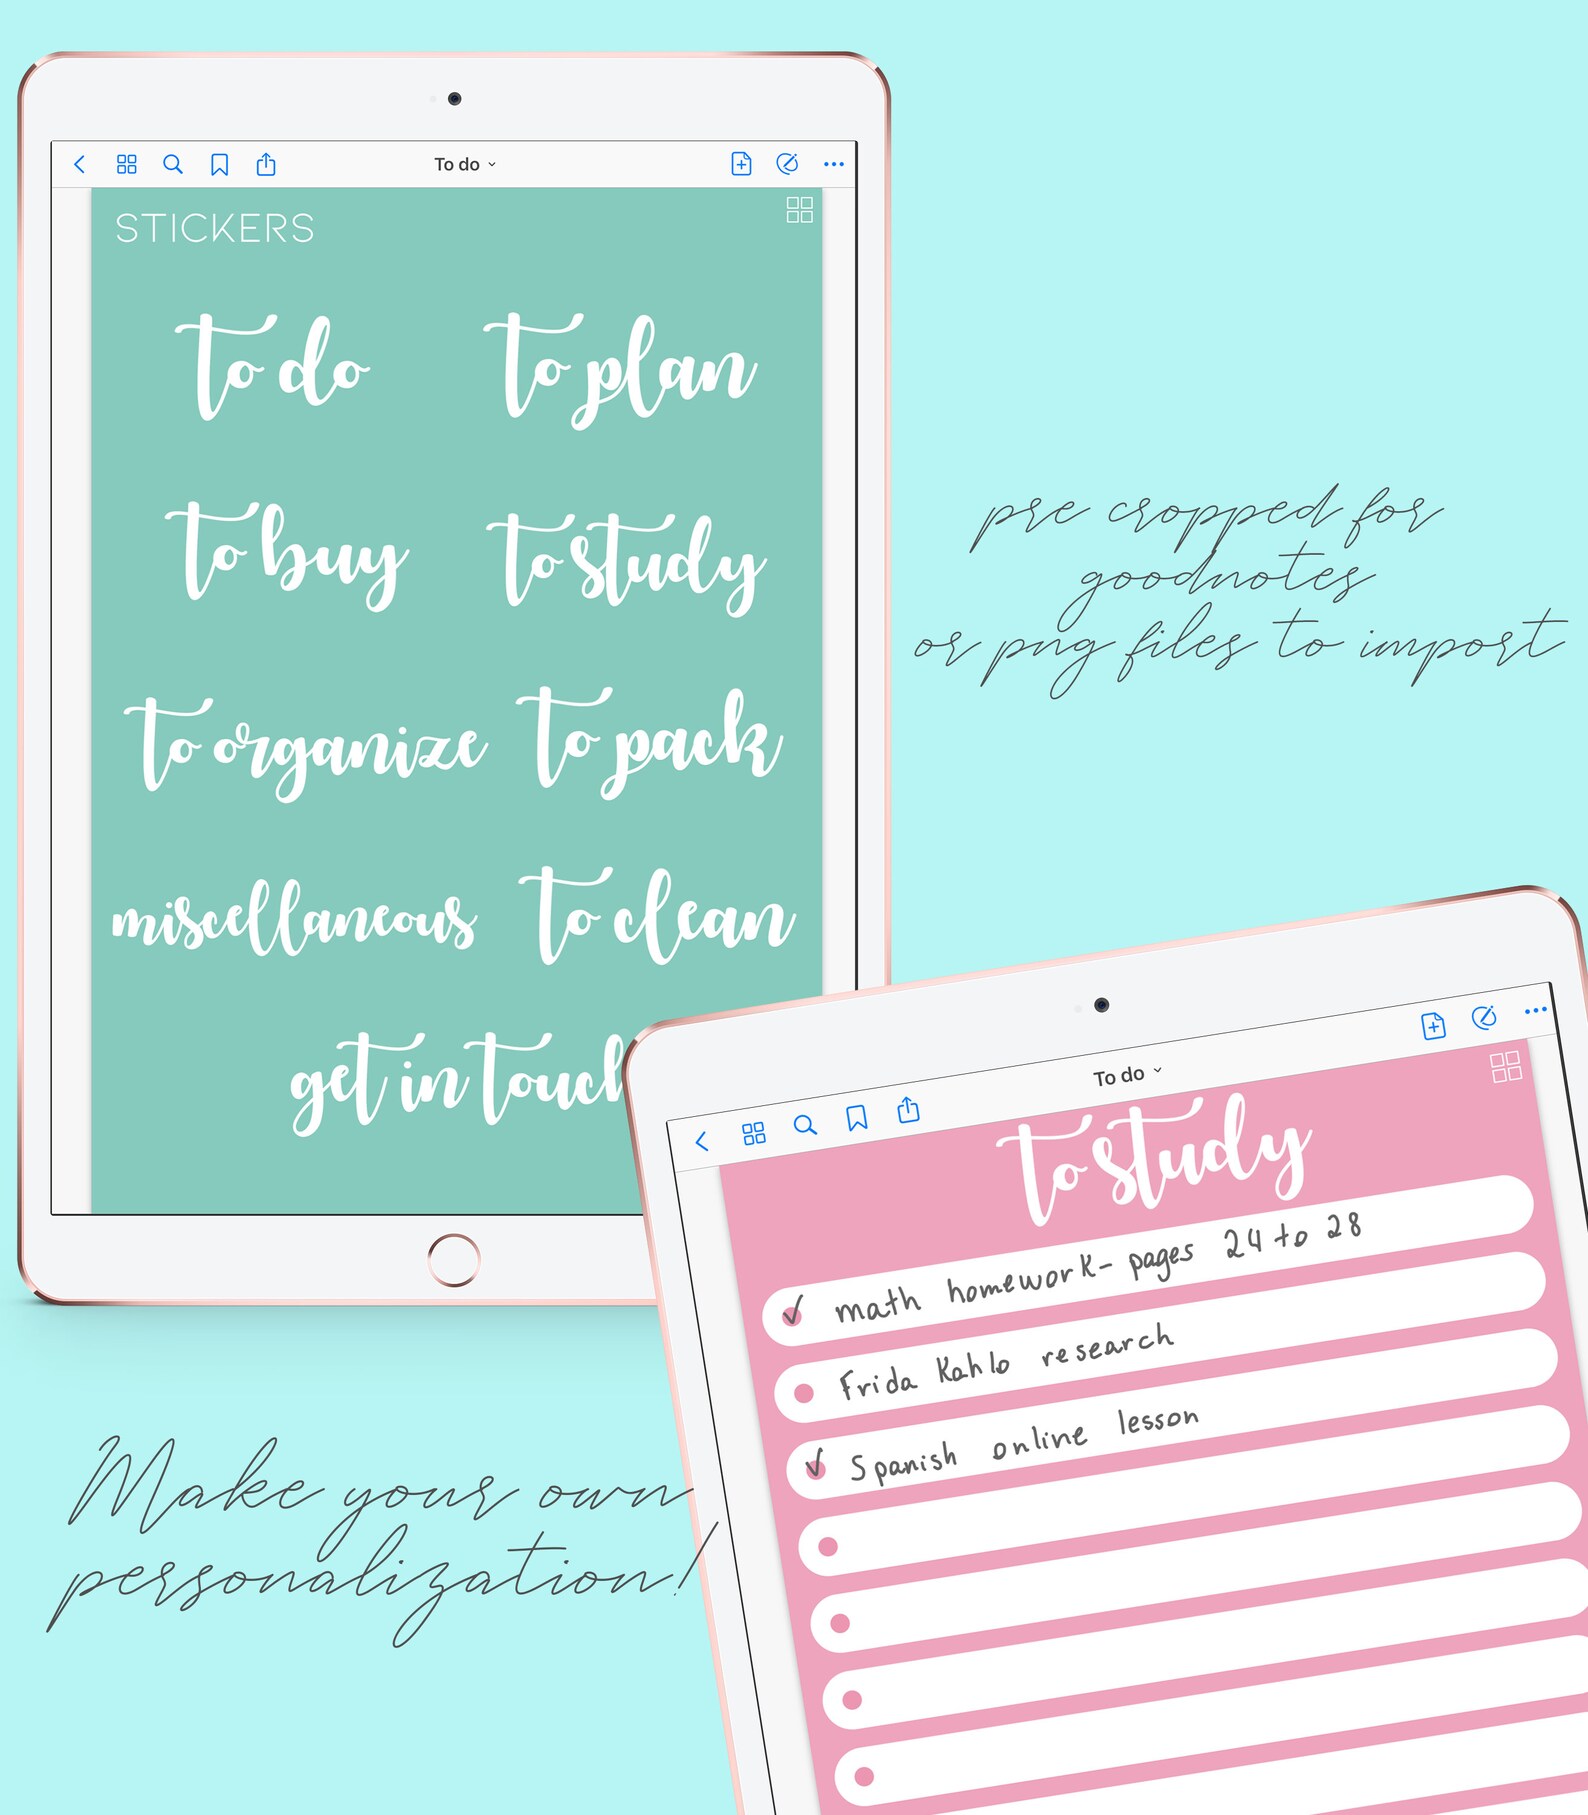 To do
STICKERS
to do
to plan
to buy
to study
to organize
to pack
miscellaneous
to clean
get in touch
pre cropped for
goodnotes
or png files to import
To do
to study
math homework - pages 24 to 28
Frida Kahlo research
Spanish online lesson
Make your own
personalization!